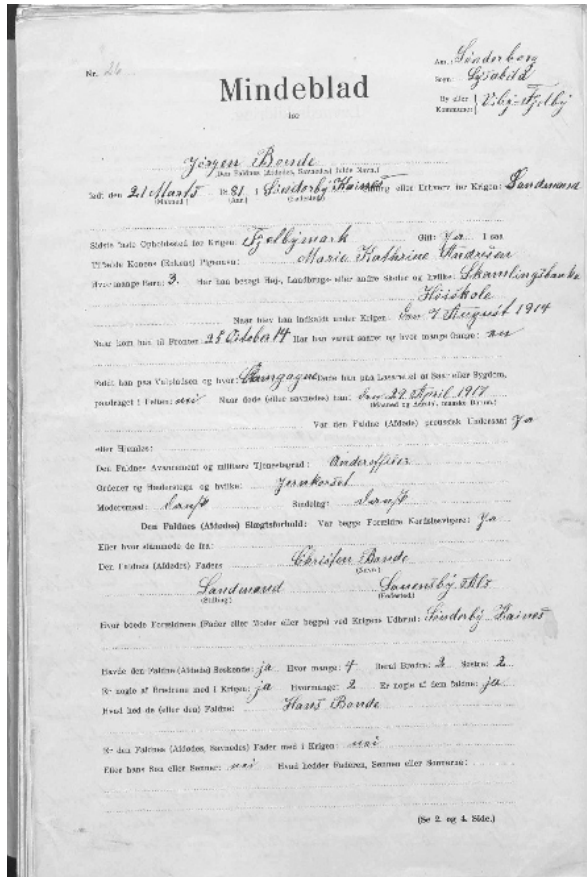 Nr. 26
Amt: Sønderborg
Sogn: Lysabild
By eller Kommune: Viby-Fjelby
Mindeblad
for
Jörgen Bonde
(Den Faldnes (Afdødes, Savnedes) fulde Navn.)
født den 21 Marts 1881 i Sönderby Kainæs Stilling eller Erhverv før Krigen: Landmand
(Maaned) (Aar) (Fødested)
Sidste faste Opholdssted før Krigen: Fjelbymark Gift: ja I saa
Tilfælde Konens (Enkens) Pigenavn: Marie Kathrine Andresen
Hvor mange Børn: 3. Har han besøgt Høj-, Landbrugs- eller andre Skoler og hvilke: Skamlingsbanke
Höiskole
Naar blev han indkaldt under Krigen: den 7 August 1914
Naar kom han til Fronten: 25 October 14 Har han været saaret og hvor mange Gange: nei
Faldt han paa Valpladsen og hvor: Champagne Døde han paa Lasarettet af Saar eller Sygdom,
paadraget i Felten: nei Naar døde (eller savnedes) han: den 29 April 1917
Var den Faldne (Afdøde) preussisk Undersaat ja
eller Hvordan:
Den Faldnes Avancement og militære Tjenestegrad: Underofficer
Ordener og Hæderstegn og hvilke: Jernkorset
Modersmaal: dansk Sindelag: dansk
Den Faldnes (Afdødes) Slægtsforhold: Var begge Forældre Nordslesvigere: ja
Eller hvor stammede de fra:
Den Faldnes (Afdødes) Faders Christen Bonde
(Navn)
Landmand Lauensby Als
(Stilling) (Fødested)
Hvor boede Forældrene (Fader eller Moder eller begge) ved Krigens Udbrud: Sönderby Kainæs
Havde den Faldne (Afdøde) Søskende: ja Hvor mange: 4 Deraf Brødre: 2 Søstre: 2
Er nogle af Brødrene med i Krigen: ja Hvormange: 2 Er nogle af dem faldne: ja
Hvad hed de (eller den) Faldne: Hans Bonde
Er den Faldnes (Afdødes, Savnedes) Fader med i Krigen: nei
Eller hans Søn eller Sønner: nei Hvad hedder Faderen, Sønnen eller Sønnerne:
(Se 2. og 4. Side.)